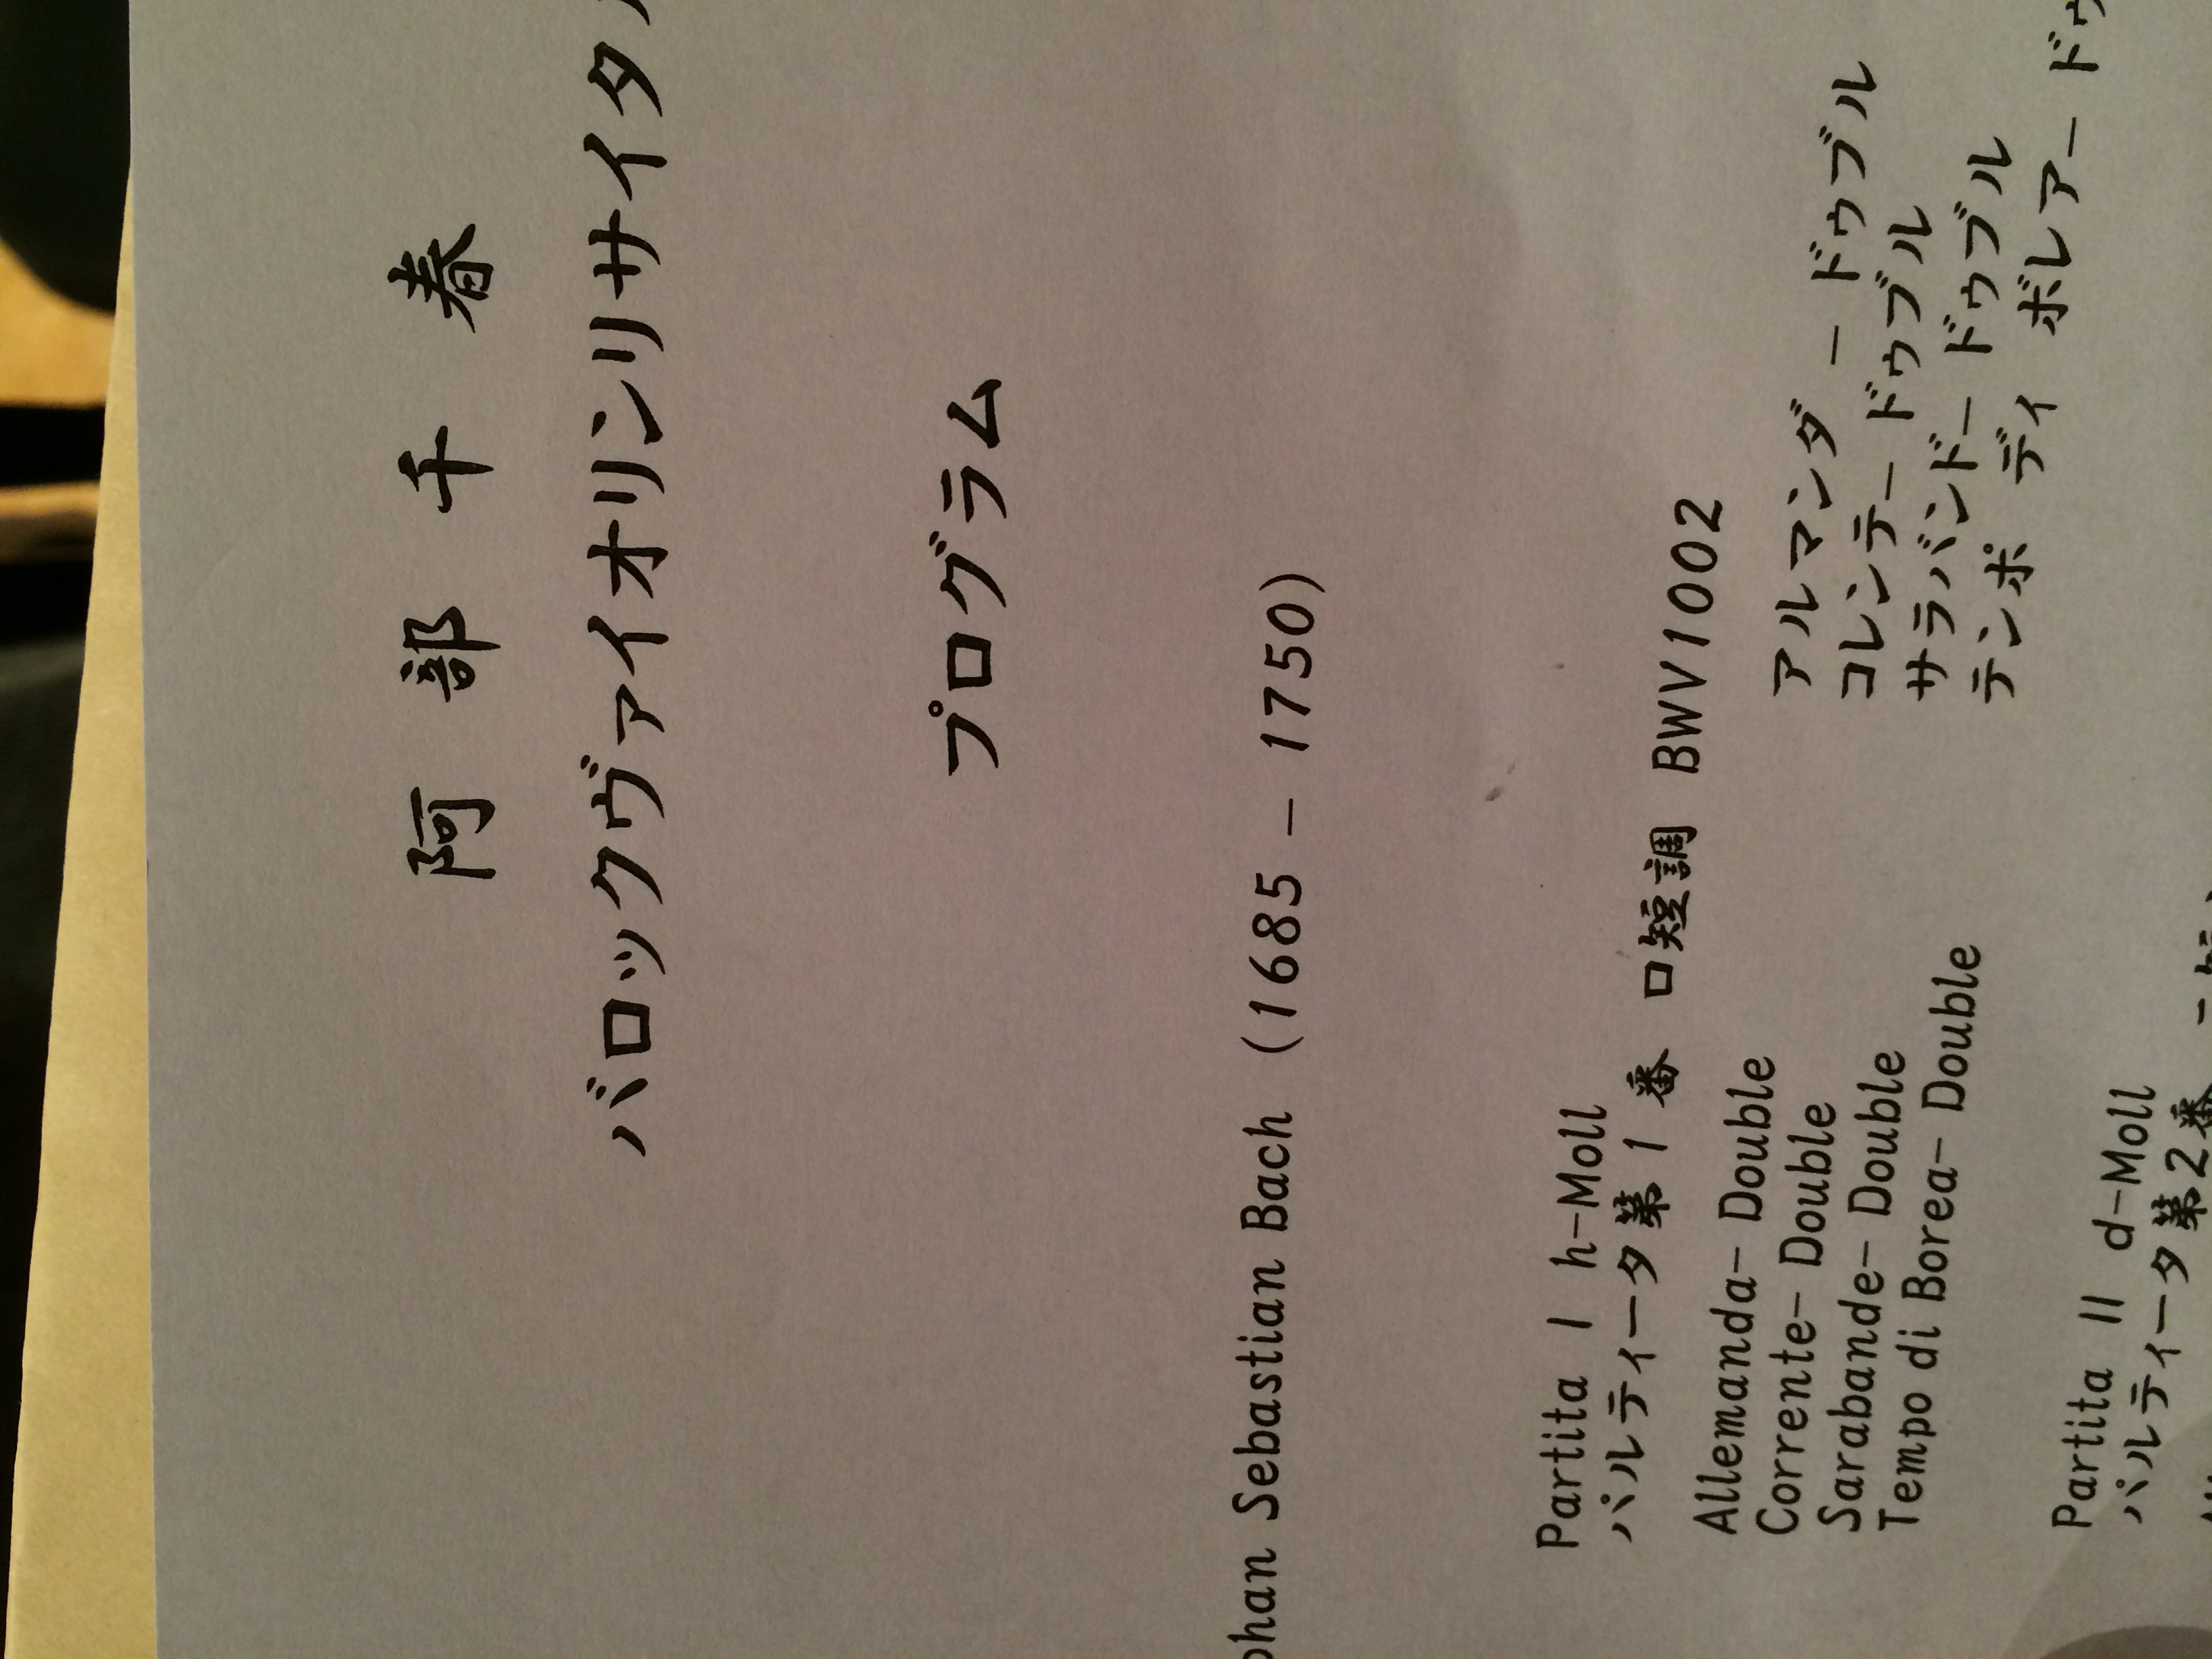 阿部千春
バロックヴァイオリンリサイタ
プログラム
ohan Sebastian Bach (1685 – 1750)
Partita I h-Moll
パルティータ第1番 ロ短調 BWV1002
Allemanda- Double アルマンダ ー ドゥブル
Corrente- Double コレンテー ドゥブル
Sarabande- Double サラバンドー ドゥブル
Tempo di Borea- Double テンポ ディ ボレアー ドゥ
Partita II d-Moll
パルティータ第2番 ニ短